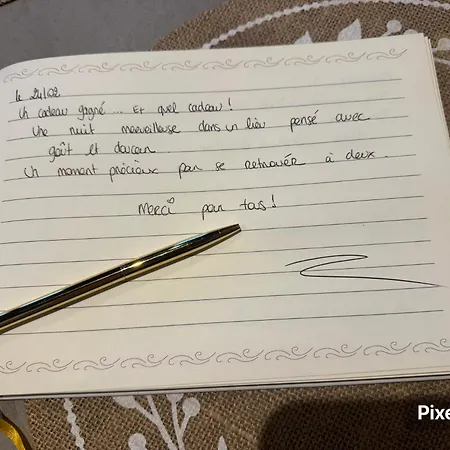 Le 24/02
Un cadeau gagné .... Et quel cadeau !
Une nuit merveilleuse dans un lieu pensé avec
goût et douceur
Un moment précieux pour se retrouver à deux.
Merci pour tous !
Pixe